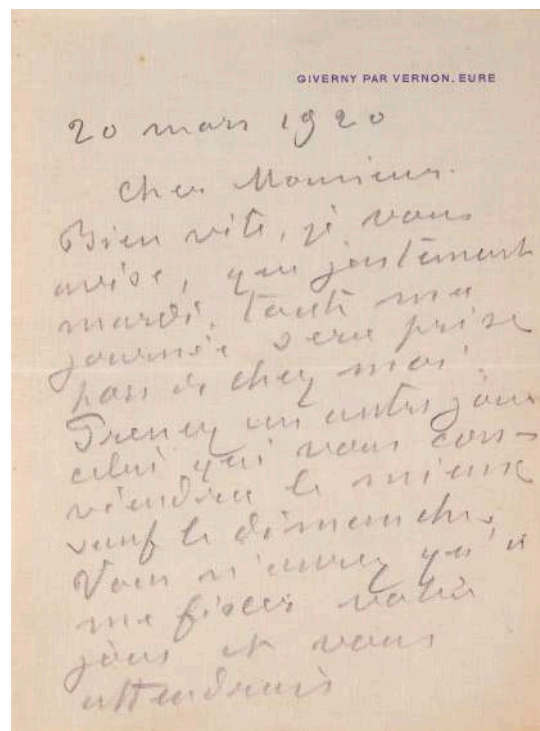 GIVERNY PAR VERNON. EURE
20 mars 1920
Cher Monsieur.
Bien vite, je vous
avise, que justement
mardi, toute ma
journée sera prise
de chez moi.
Prenez un autre jour
celui qui vous con-
viendra le mieux
sauf le dimanche.
Vous n'aurez qu'à
me fixer votre
jour et vous
attendrais